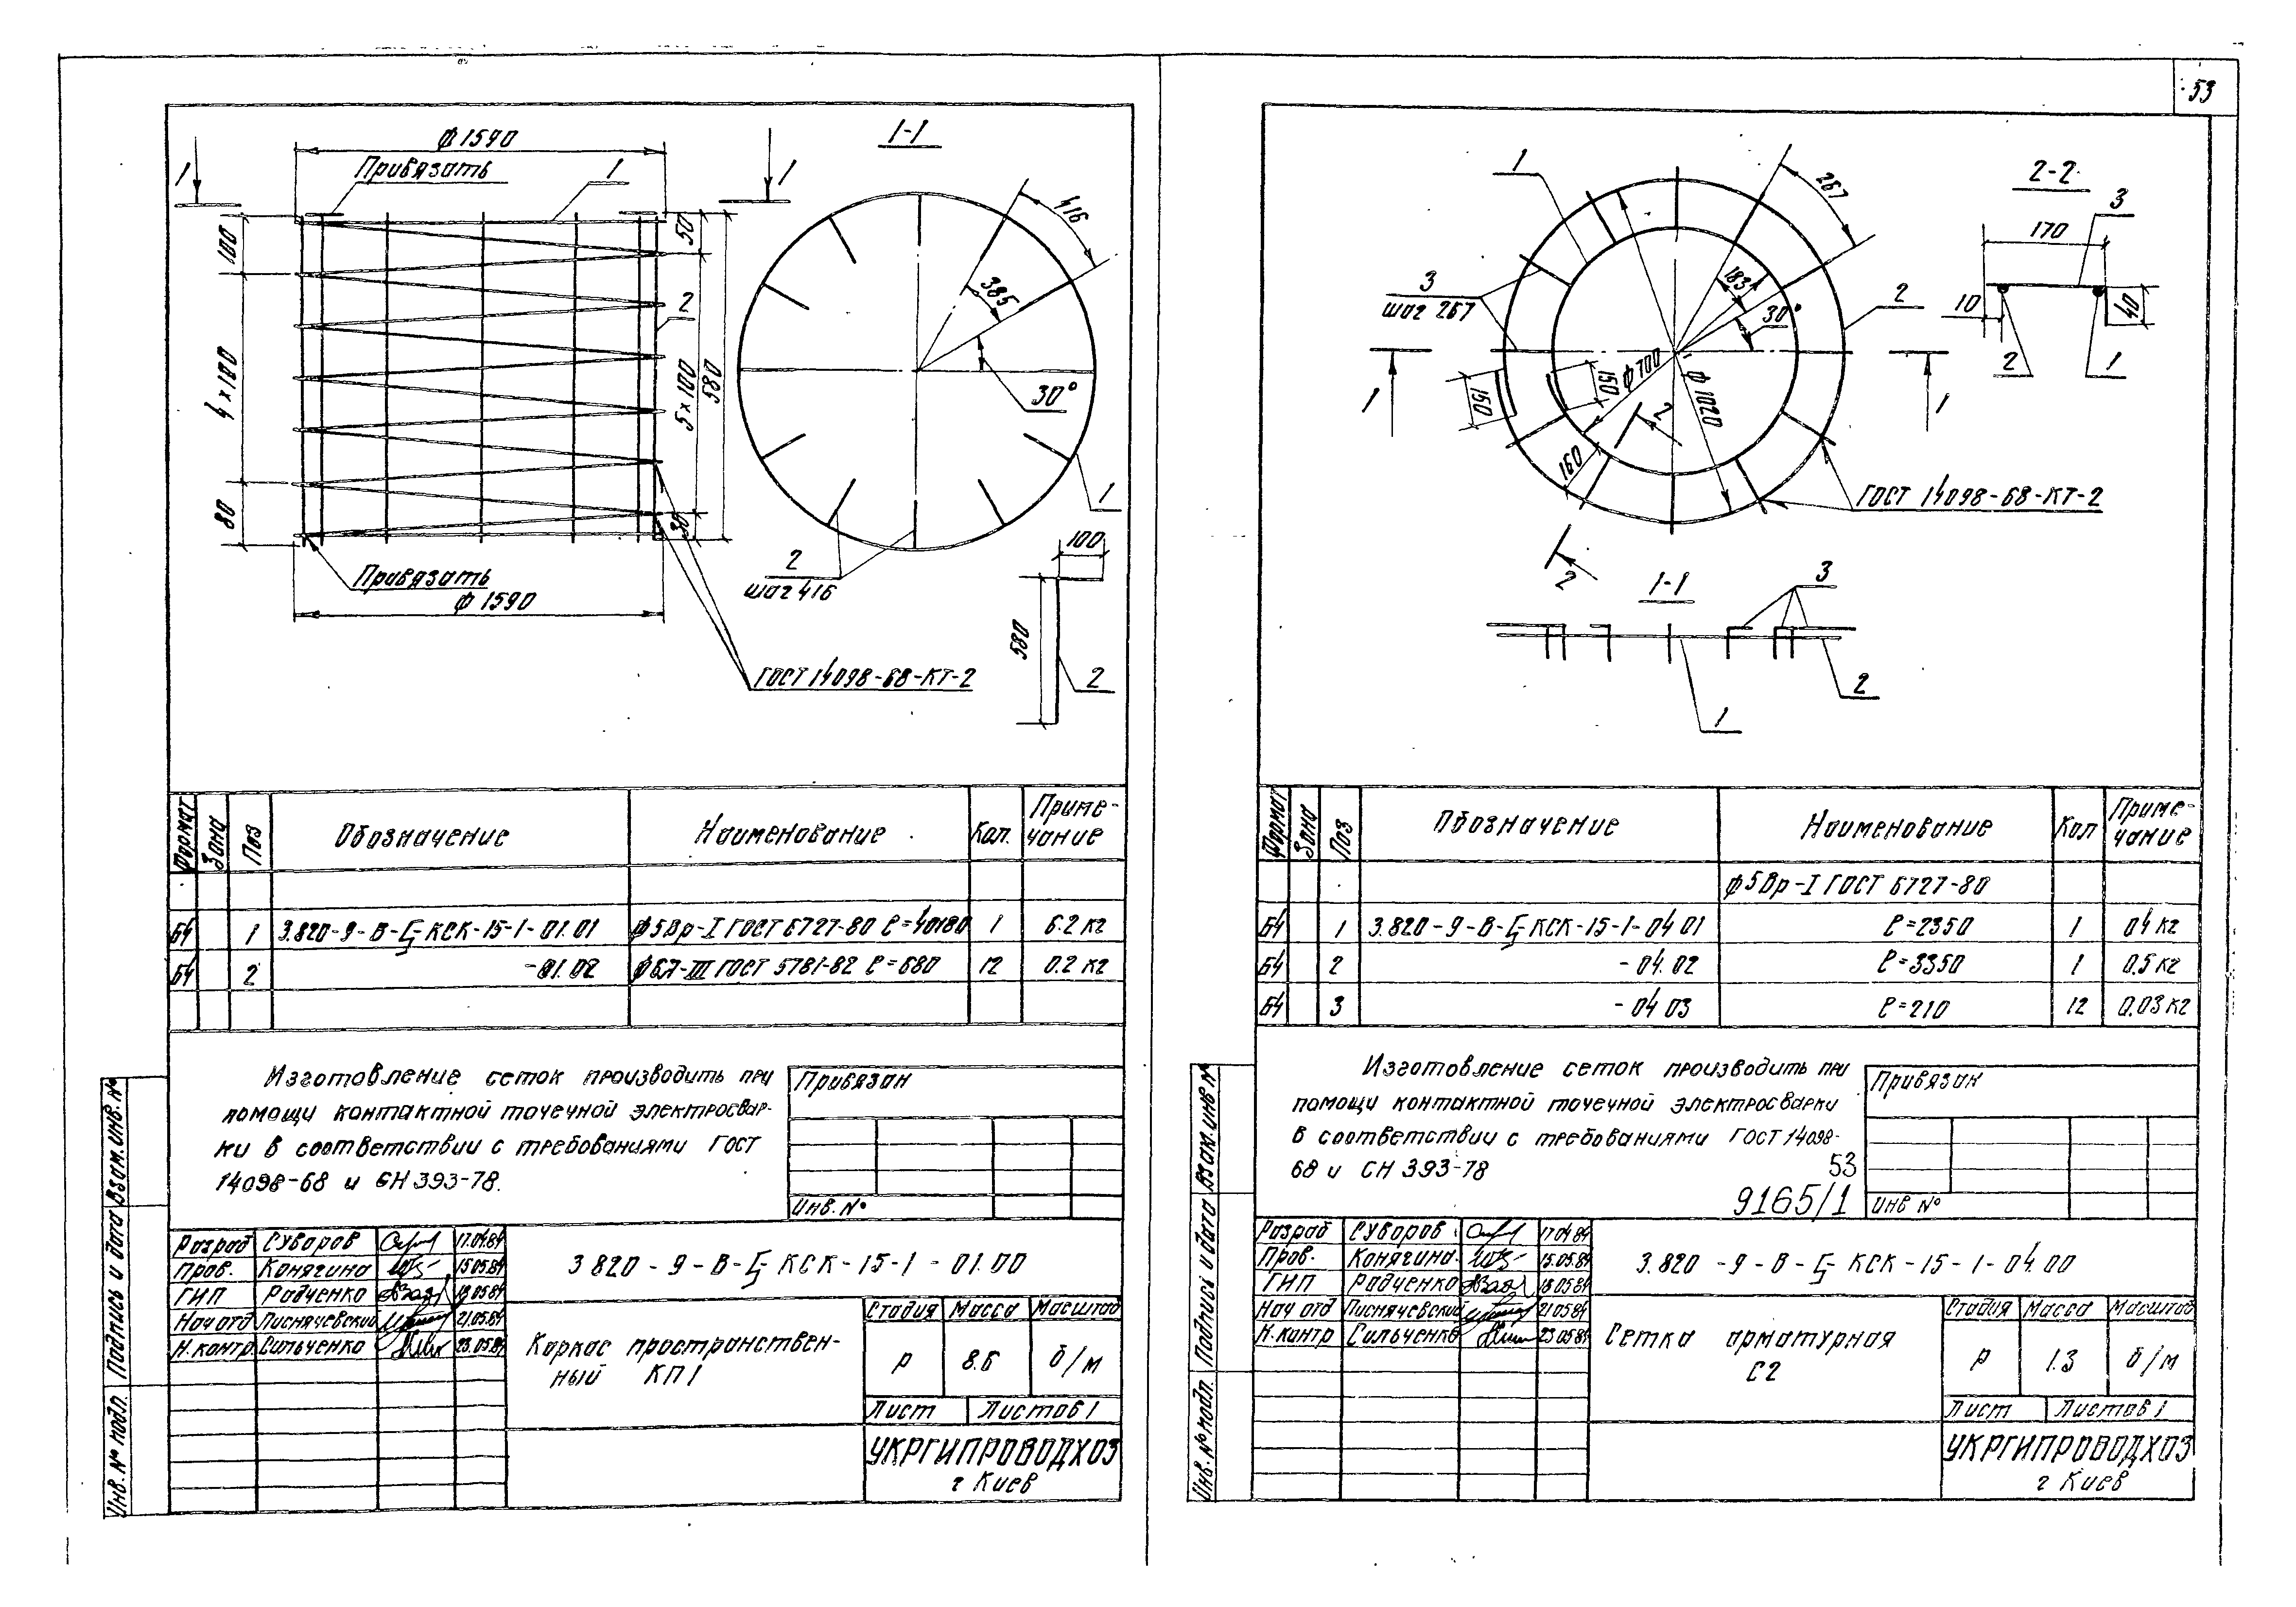 53
ф 1590
Привязать
1
1
1
1-1
416
385
30°
100
4 × 100
80
50
5 × 100
580
30
2
1
2
шаг 416
Привязать
ф 1590
ГОСТ 14098-68-КТ-2
100
580
2
Формат
Зона
Поз
Обозначение
Наименование
Кол.
Приме-
чание
БЧ 1 3.820-9-В-Ц-КСК-15-1-01.01 ф5Вр-I ГОСТ 6727-80 ℓ=40180 1 6.2 кг
БЧ 2 -01.02 ф6А-III ГОСТ 5781-82 ℓ=680 12 0.2 кг
Изготовление сеток производить при
помощи контактной точечной электросвар-
ки в соответствии с требованиями ГОСТ
14098-68 и СН 393-78.
Привязан
Инв. №
Взам. инв. №
Подпись и дата
Инв. № подл.
Разраб Суворов 17.04.84
Пров. Конягина 15.05.84
ГИП Радченко 18.05.84
Нач отд Лиснячевский 21.05.84
Н. контр Сильченко 23.05.84
3.820-9-В-Ц КСК-15-1-01.00
Каркас пространствен-
ный КП1
Стадия Масса Масштаб
Р 8.6 б/м
Лист Листов 1
УКРГИПРОВОДХОЗ
г Киев
1
267
183
30°
3
шаг 267
2
1
1
150
150
ф 700
ф 1020
160
2
2
ГОСТ 14098-68-КТ-2
2-2
3
170
10
40
2
1
1-1
3
2
1
Формат
Зона
Поз
Обозначение
Наименование
Кол
Приме-
чание
ф5Вр-I ГОСТ 6727-80
БЧ 1 3.820-9-В-Ц КСК-15-1-04 01 ℓ=2350 1 04 кг
БЧ 2 -04.02 ℓ=3350 1 0.5 кг
БЧ 3 -04 03 ℓ=210 12 0.03 кг
Изготовление сеток производить при
помощи контактной точечной электросварки
в соответствии с требованиями ГОСТ 14098-
68 и СН 393-78
53
9165/1
Привязан
Инв №
Взам. инв №
Подпись и дата
Инв. № подл.
Разраб Суворов 17.04.84
Пров. Конягина 15.05.84
ГИП Радченко 18.05.84
Нач отд Лиснячевский 21.05.84
Н. контр Сильченко 23.05.84
3.820-9-В-Ц КСК-15-1-04.00
Сетка арматурная
С2
Стадия Масса Масштаб
Р 1.3 б/м
Лист Листов 1
УКРГИПРОВОДХОЗ
г Киев